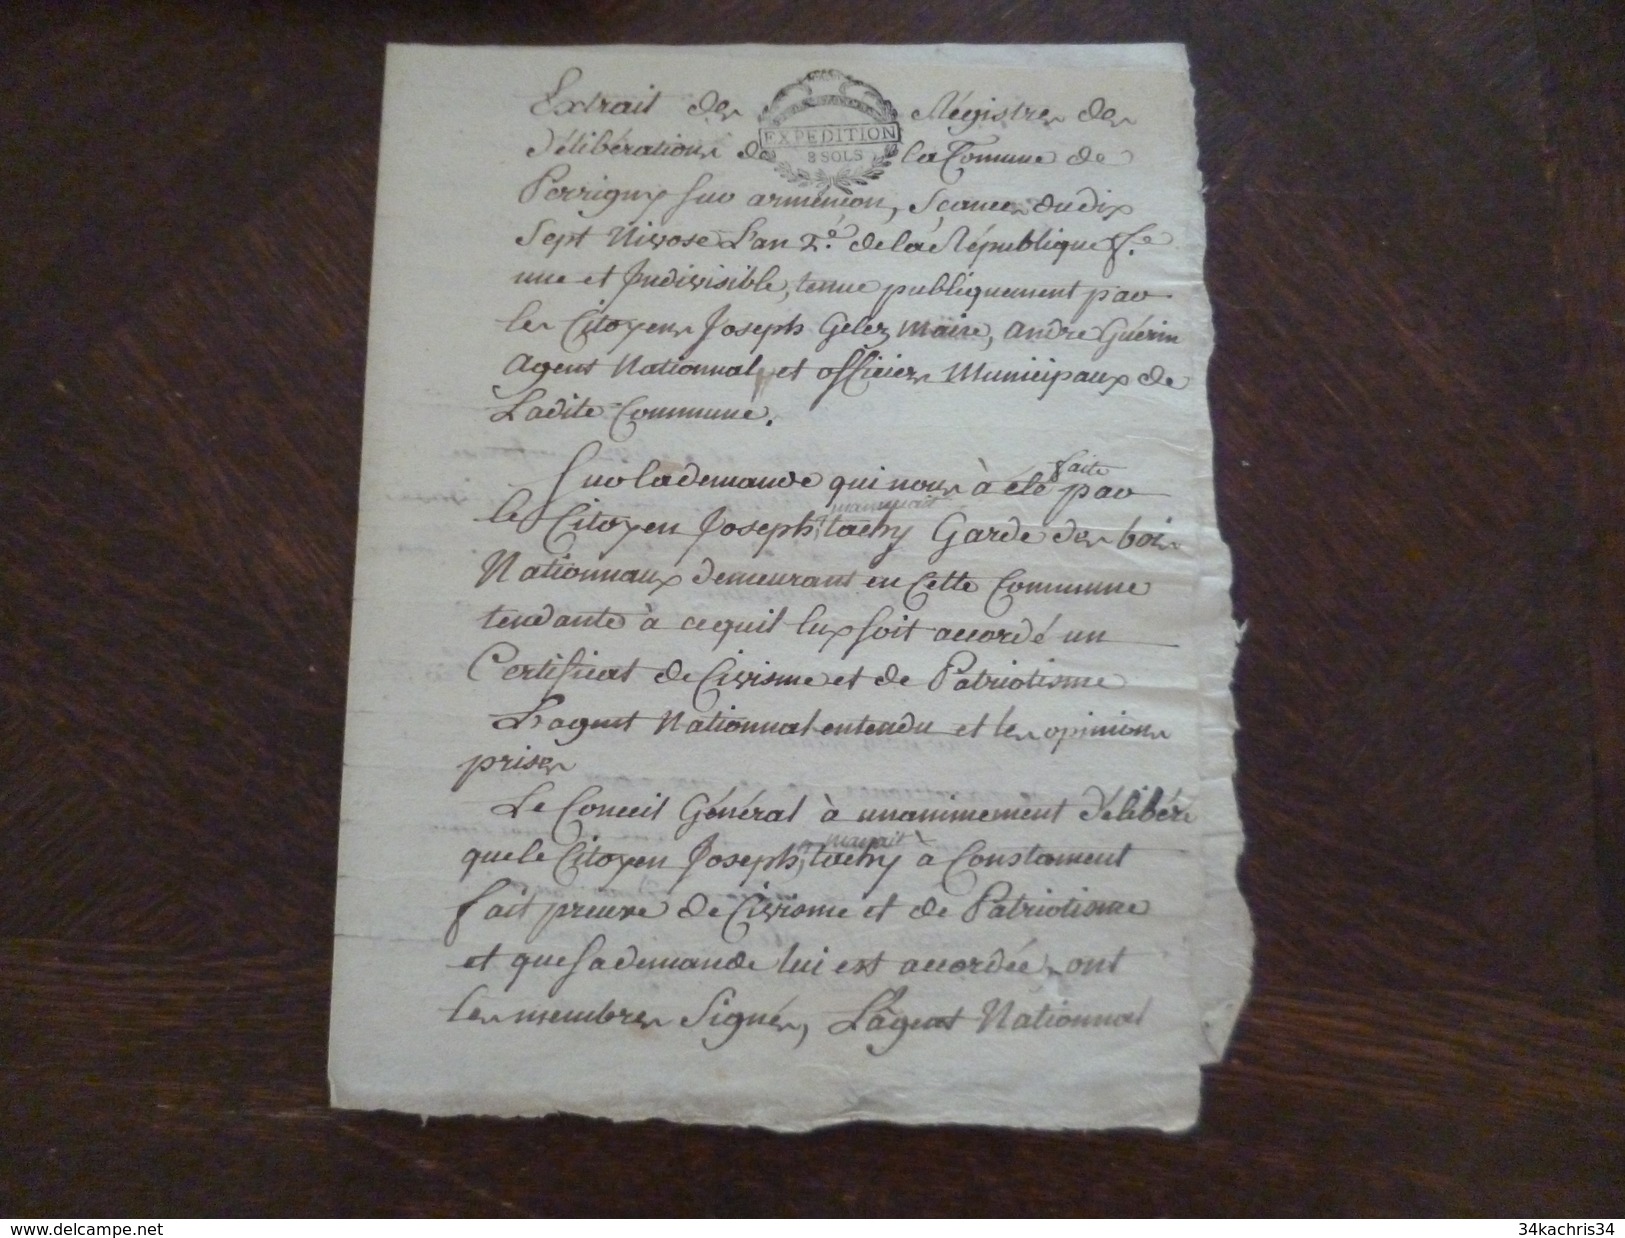 Extrait des Régistres des
EXPEDITION
8 SOLS
Délibérations de la Comune de
Perrigny sur armencon, Seance du dix
Sept Nivose L'an 2.e de la République f.e
une et Indivisible, tenue publiquement par
les Citoyens Joseph Gelez maire, andre Guérin
agent Nationnal et officiers Municipaux de
Ladite Commune.
Sur la demande qui nous à été faite par
le Citoyen Joseph tachy Garde des bois
Nationnaux demeurant en Cette Commune
tendante à cequil luy soit accordé un
Certificat de Civisme et de Patriotisme
L'agent Nationnal entendu et les opinions
prises
Le Conseil Général à unanimement Délibéré
que le Citoyen Joseph tachy a Constament
fait preuve de Civisme et de Patriotisme
et que sa demande lui est accordée, ont
les membres Signés, L'agent Nationnal
www.delcampe.net
34kachris34